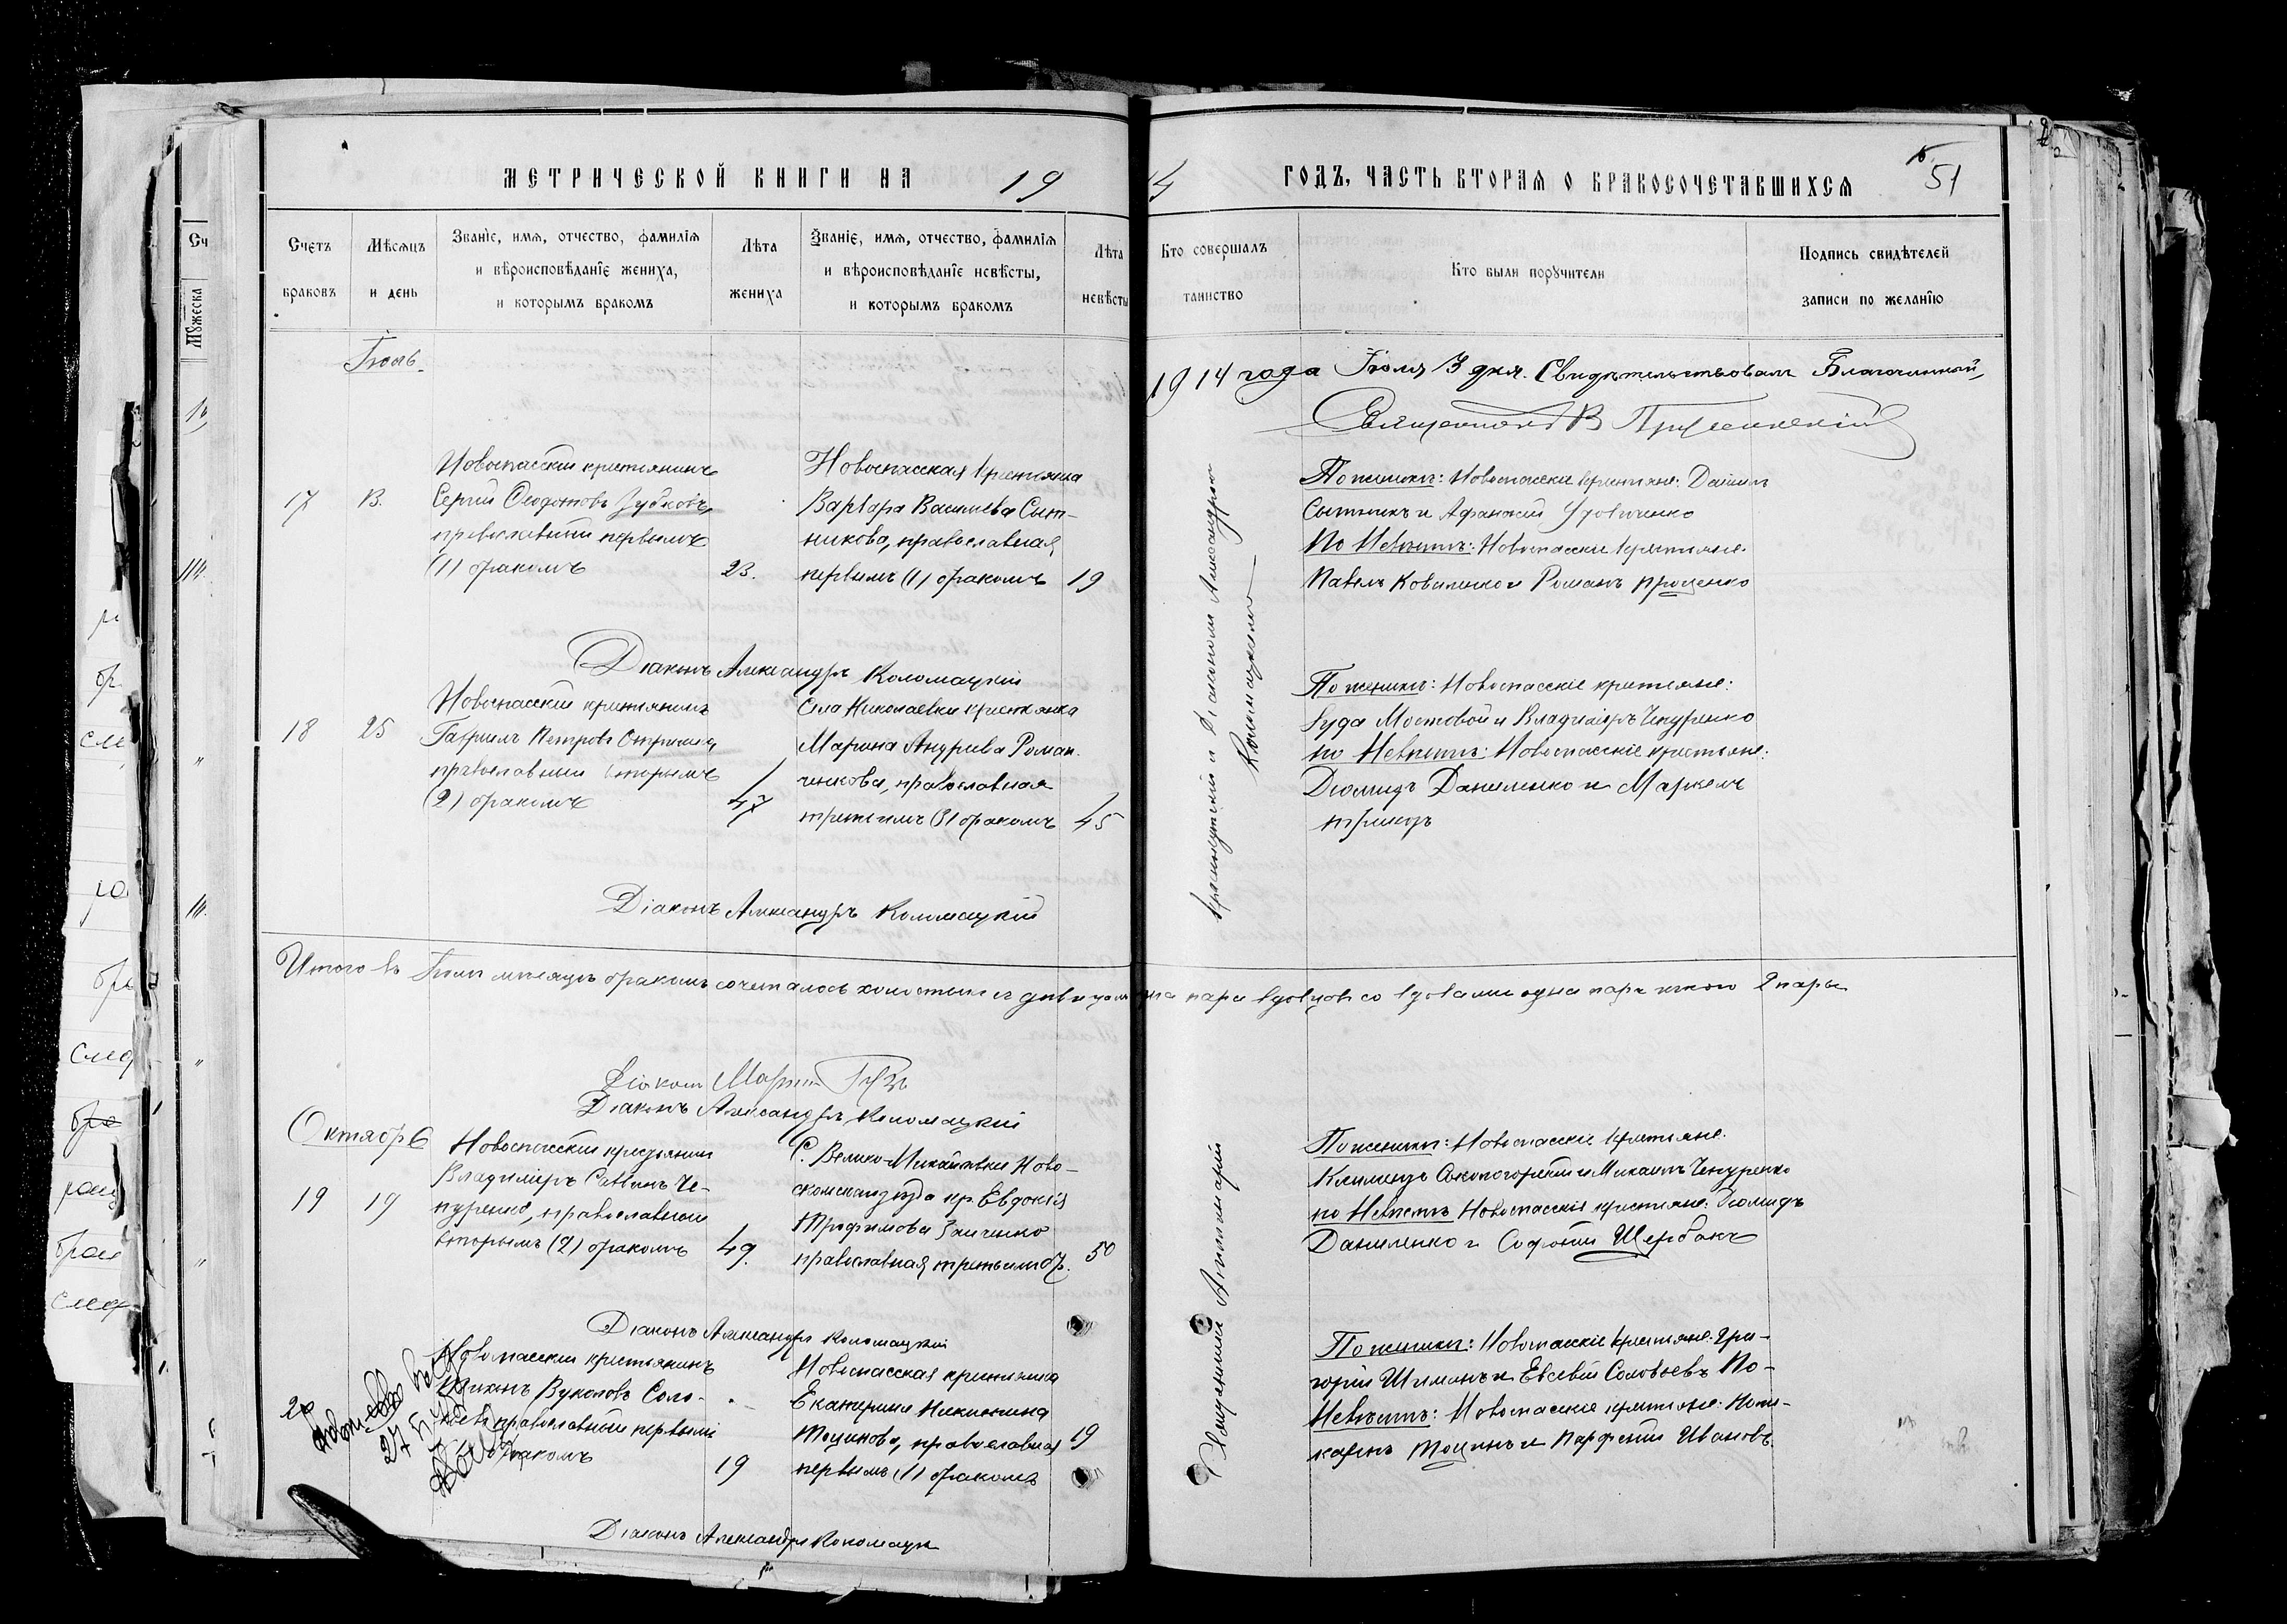 МЕТРИЧЕСКОЙ КНИГИ НА 19
14 ГОДЪ, ЧАСТЬ ВТОРАЯ О БРАКОСОЧЕТАВШИХСЯ
51
Счетъ браковъ
Мѣсяцъ и день
Званіе, имя, отчество, фамилія
и вѣроисповѣданіе жениха,
и которымъ бракомъ
Лѣта жениха
Званіе, имя, отчество, фамилія
и вѣроисповѣданіе невѣсты,
и которымъ бракомъ
Лѣта невѣсты
Кто совершалъ таинство
Кто были поручители
Подпись свидѣтелей
записи по желанію
Іюль
1914 года Іюля 13 дня. Свидѣтельствовалъ Благочинный,
Священникъ В
17
Новоспасскій крестьянинъ
Сергій Ѳеодотовъ Зубковъ,
православный первымъ
(1) бракомъ
23.
Новоспасская крестьянка
Варвара Васильева Сыт-
никова, православная,
первымъ (1) бракомъ
19
По женихѣ: Новоспасскіе крестьяне: Даніилъ
Сытникъ и Афанасій Удовиченко
По Невѣстѣ: Новоспасскіе крестьяне:
Павелъ Коваленко и Романъ Проценко
Діаконъ Александръ Коломацкій
18
25
Новоспасскій крестьянинъ
Гавріилъ Петровъ
православный вторымъ
(2) бракомъ
47
Села Николаевки крестьянка
Марина Андреева Роман-
ченкова, православная
третьимъ (3) бракомъ
45
По женихѣ: Новоспасскіе крестьяне:
Іуда Мостовой и Владиміръ Чепуренко
по Невѣстѣ: Новоспасскіе крестьяне:
Діомидъ Даниленко и Маркелъ
Діаконъ Александръ Коломацкій
съ Діакономъ Александромъ
Коломацкимъ
Итого въ Іюлѣ мѣсяцѣ бракомъ сочеталось холостыхъ съ дѣвицами одна пара вдовцовъ со вдовами одна пара итого 2 пары
Діаконъ
Діаконъ Александръ Коломацкій
Октябрь
19
19
Новоспасскій крестьянинъ
Владиміръ Саввинъ Че-
пуренко, православный
вторымъ (2) бракомъ
49.
С. Велико-Михайловки Ново-
московск. уѣзда кр. Евдокія
Трофимова
православная третьимъ бр.
50
По женихѣ: Новоспасскіе крестьяне:
и Михаилъ Чепуренко
по Невѣстѣ Новоспасскіе крестьяне: Діомидъ
Даниленко и Софоній Щербакъ
Діаконъ Александръ Коломацкій
20
Новоспасскій крестьянинъ
Вуколовъ Соло-
православный первымъ
бракомъ
19
Новоспасская крестьянка
Екатерина Никитина
православная
первымъ (1) бракомъ
19
По женихѣ: Новоспасскіе крестьяне: Гри-
горій и Евсевій Соловьевъ По-
Невѣстѣ: Новоспасскіе крестьяне:
и Парфеній Ивановъ.
Священникъ
Діаконъ Александръ Коломацк